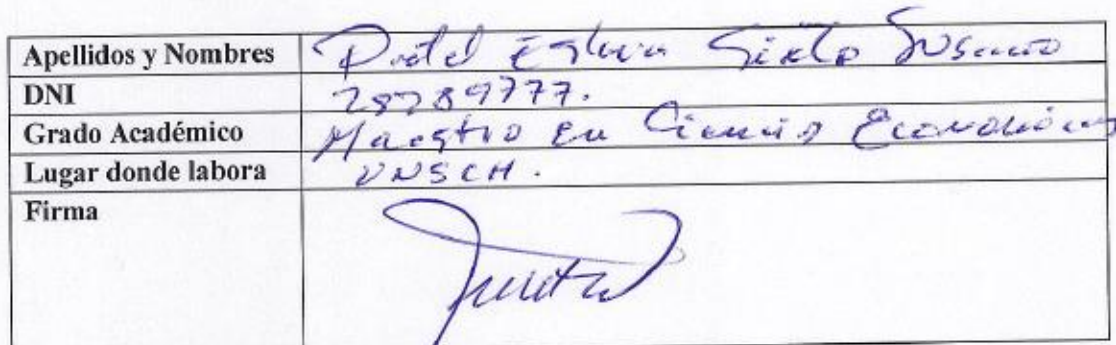 Apellidos y Nombres Sixto
DNI 28289777.
Grado Académico Maestro en Ciencias Económicas
Lugar donde labora UNSCH.
Firma